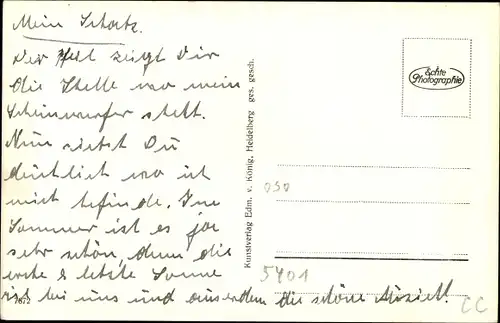 Mein Schatz.
Der Pfeil zeigt Dir
die Stelle wo mein
Scheinwerfer steht.
Nun siehst Du
deutlich wo ich
mich befinde. Im
Sommer ist es ja
sehr schön, denn die
erste & letzte Sonne
ist bei uns und ausserdem die schöne Aussicht!
Echte
Photographie
Kunstverlag Edm. v. König, Heidelberg ges. gesch.
030
5401
CC